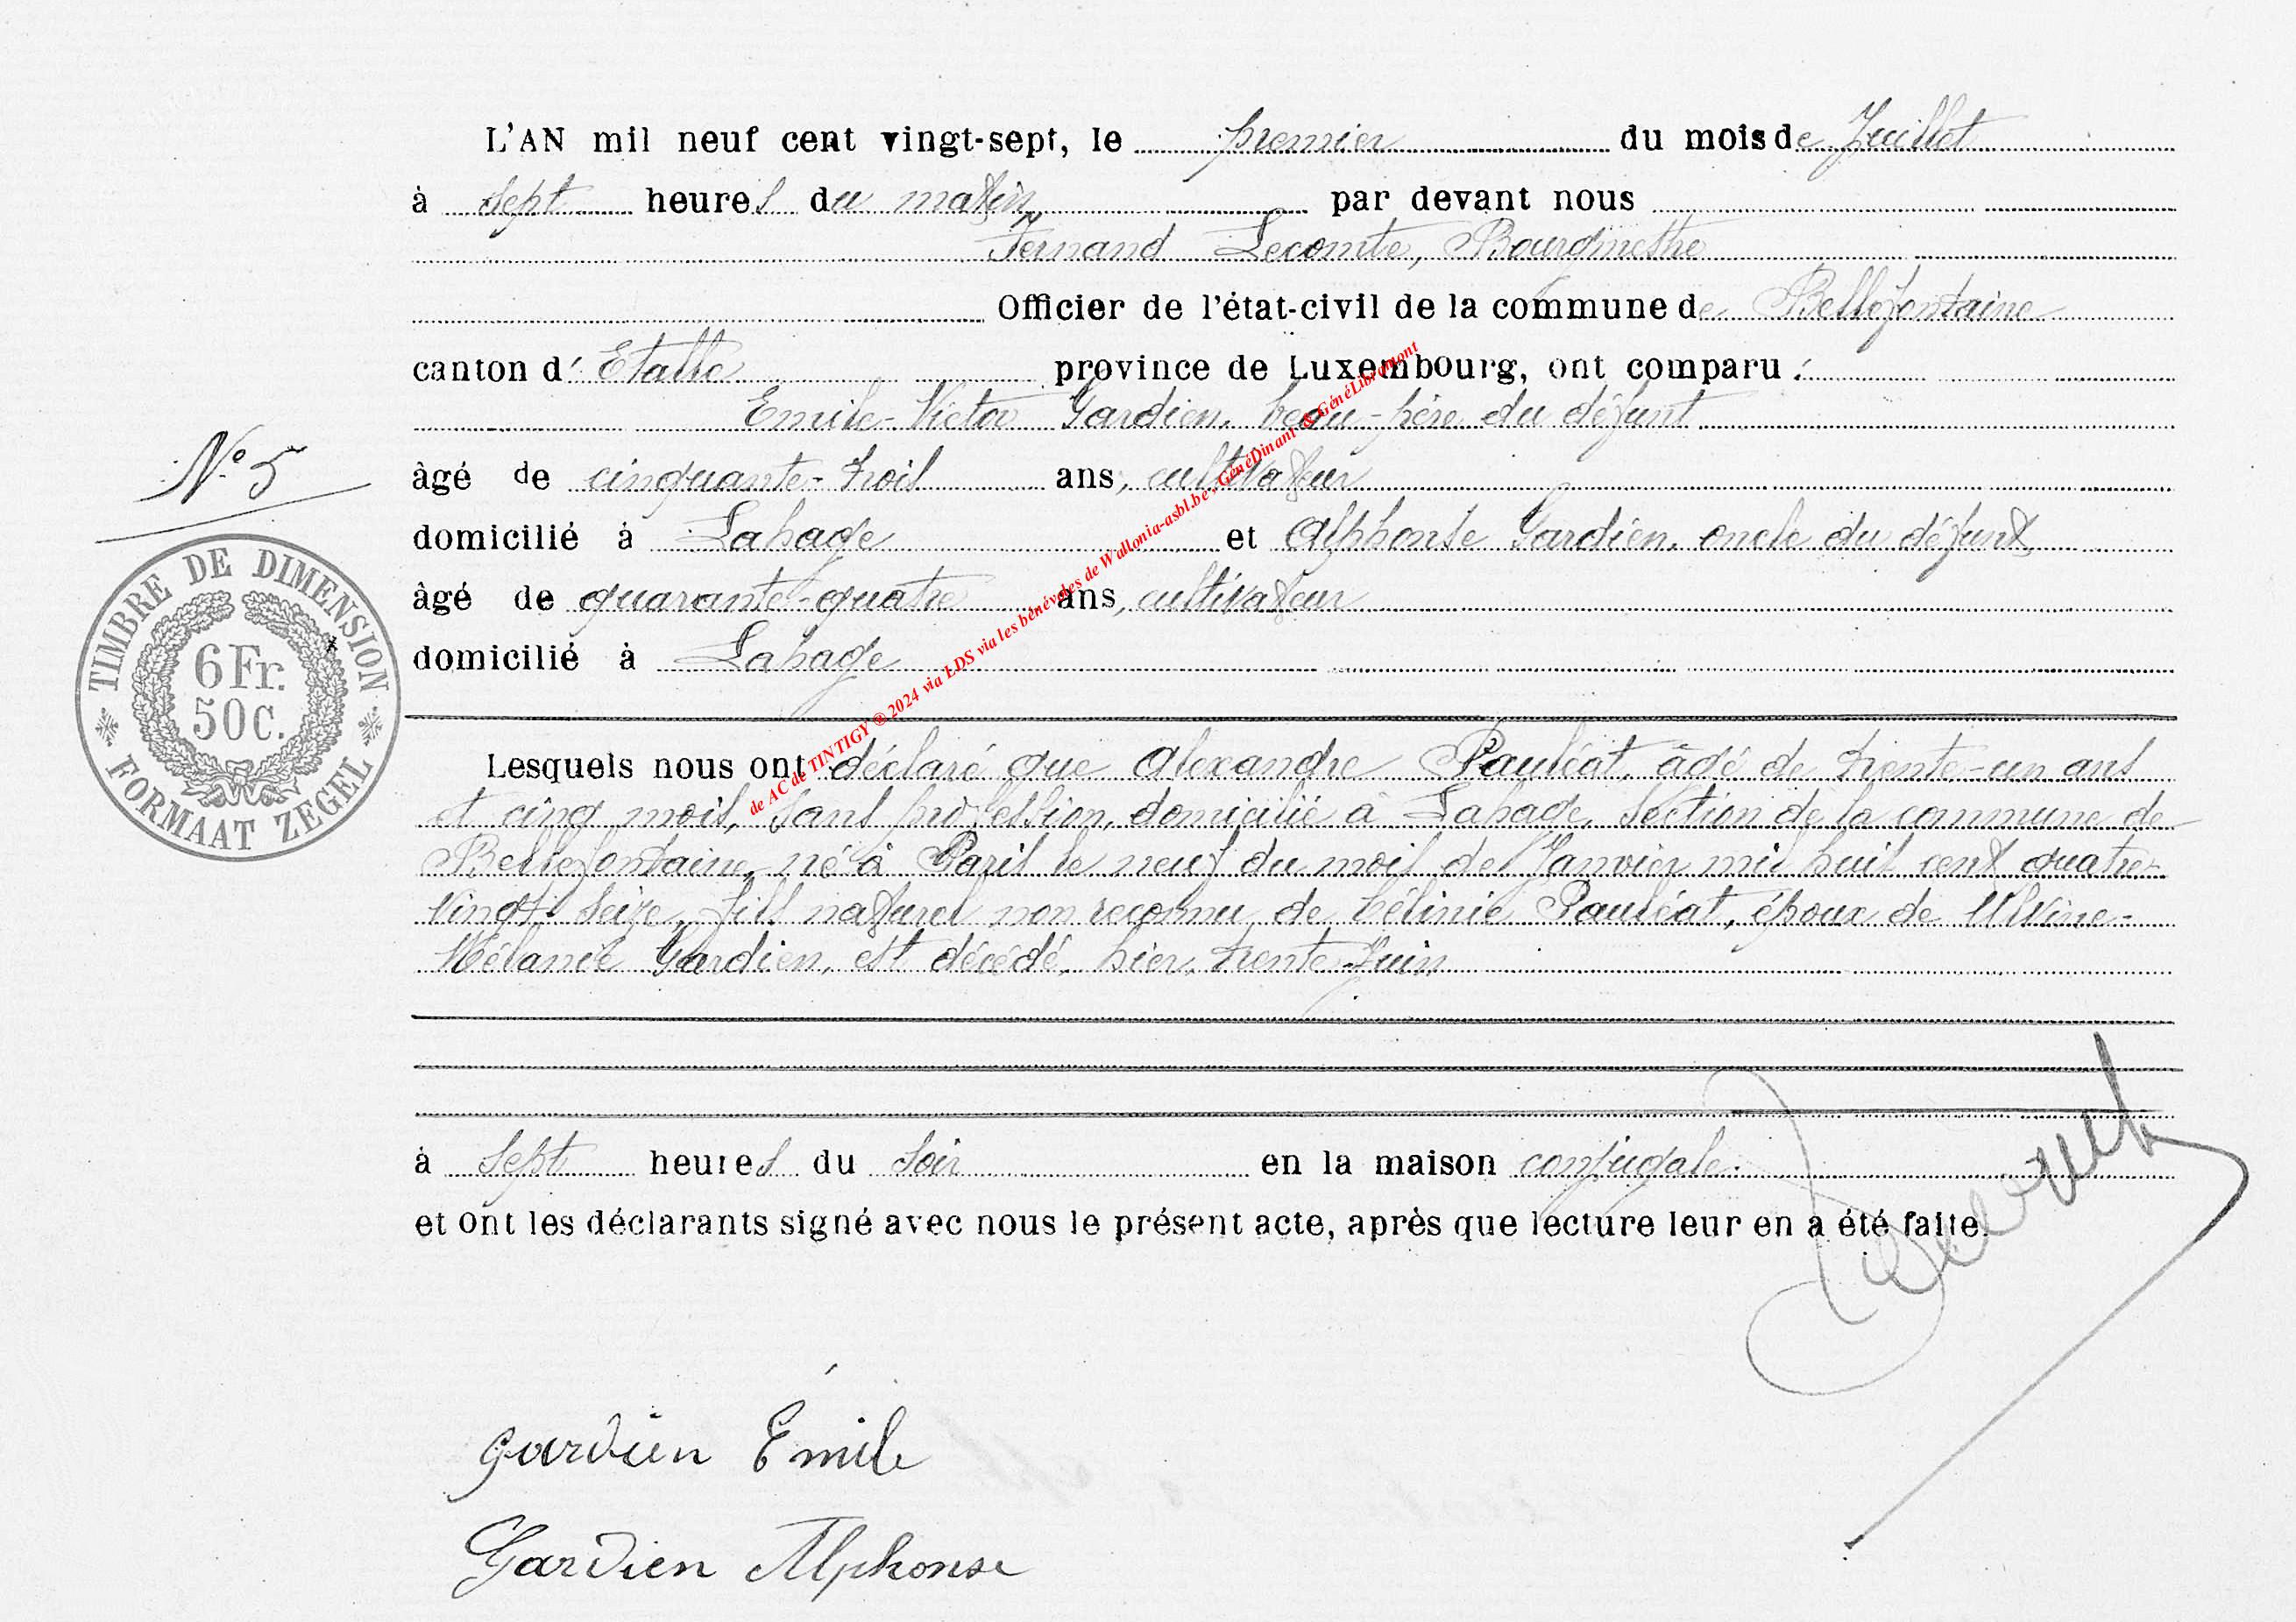 L'AN mil neuf cent vingt-sept, le premier du mois de Juillet
à sept heures du matin par devant nous
Fernand Lecomte, Bourgmestre
Officier de l'état-civil de la commune de Bellefontaine
canton d'Etalle province de Luxembourg, ont comparu :
Emile-Victor Gardien, beau-père du défunt
N° 5
âgé de cinquante-trois ans, cultivateur
domicilié à Lahage et Alphonse Gardien, oncle du défunt,
âgé de quarante-quatre ans, cultivateur
domicilié à Lahage
TIMBRE DE DIMENSION
6 Fr.
50 C.
FORMAAT ZEGEL
de AC de TINTIGY ® 2024 via LDS via les bénévoles de Wallonia-asbl.be, GénéDinant & GénéLibramont
Lesquels nous ont déclaré que Alexandre Pauléat, âgé de trente-un ans
et cinq mois, sans profession, domicilié à Lahage, section de la commune de
Bellefontaine, né à Paris le neuf du mois de Janvier mil huit cent quatre-
vingt-seize, fils naturel non reconnu de Célinie Pauléat, époux de Ulvine-
Mélanie Gardien, est décédé, hier, trente Juin
à sept heures du soir en la maison conjugale.
et ont les déclarants signé avec nous le présent acte, après que lecture leur en a été faite.
Gardien Emile
Gardien Alphonse